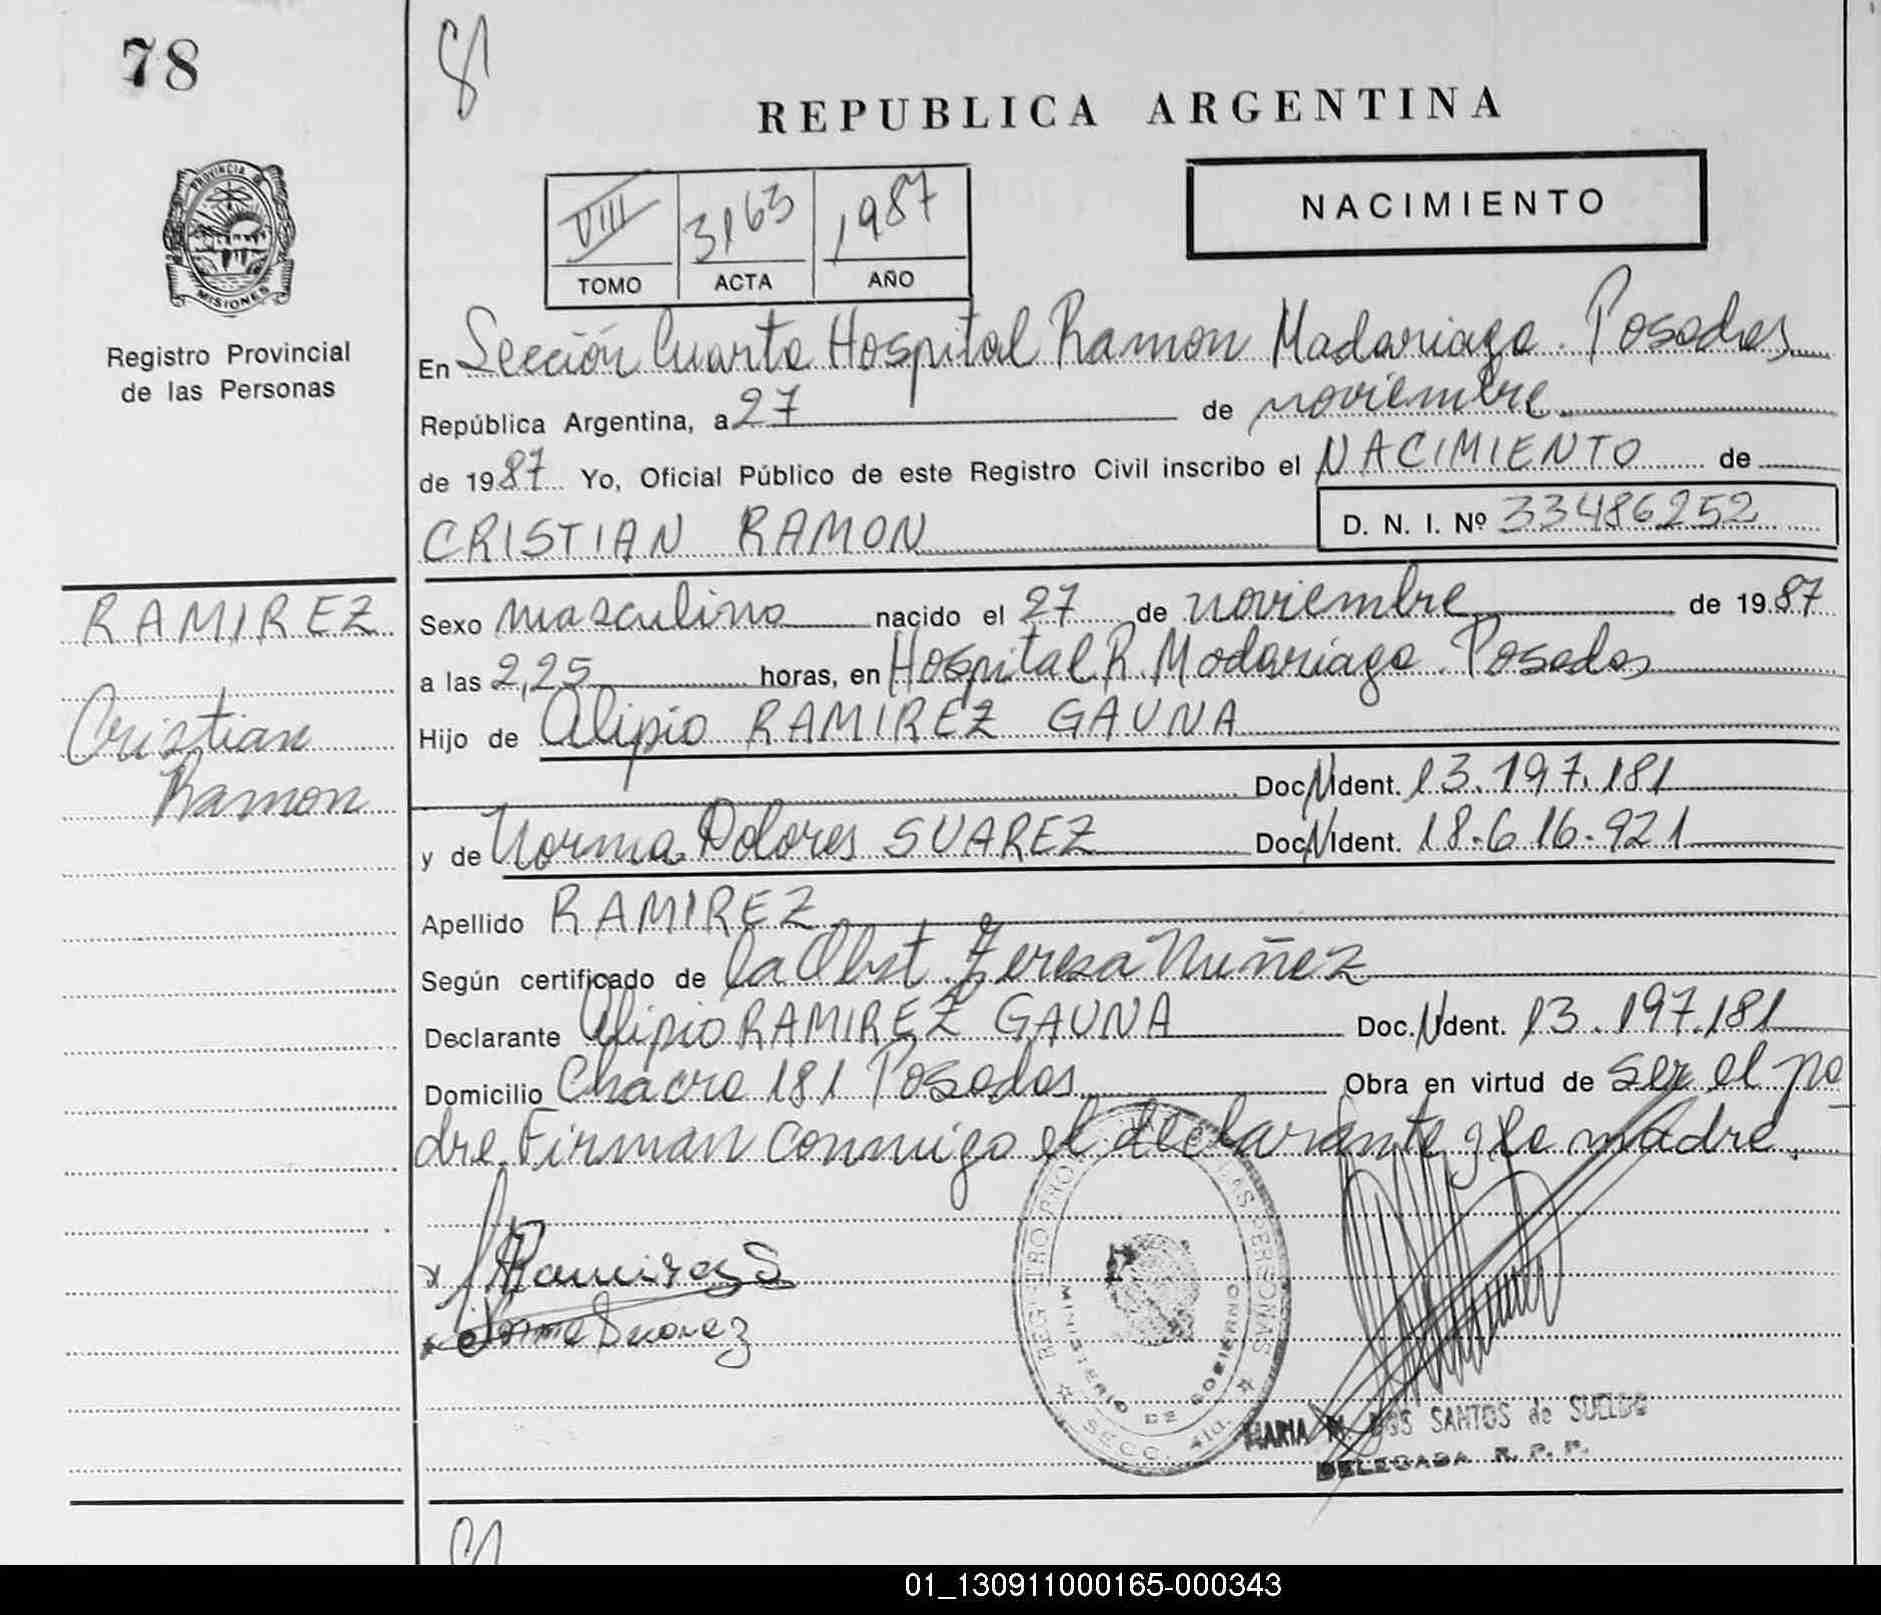 78
REPUBLICA ARGENTINA
PROVINCIA DE MISIONES
VIII 3163 1987
TOMO ACTA AÑO
NACIMIENTO
Registro Provincial
de las Personas
En Sección Cuarta Hospital Ramon Madariaga. Posadas
República Argentina, a 27 de noviembre
de 1987 Yo, Oficial Público de este Registro Civil inscribo el NACIMIENTO de
CRISTIAN RAMON D. N. I. Nº 33486252
RAMIREZ
Cristian
Ramon
Sexo masculino nacido el 27 de noviembre de 1987
a las 2,25 horas, en Hospital R. Madariaga. Posadas
Hijo de Alipio RAMIREZ GAUNA
Doc. N Ident. 13.197.181
y de Norma Dolores SUAREZ Doc. N Ident. 18.616.921
Apellido RAMIREZ
Según certificado de la Obst. Teresa Nuñez
Declarante Alipio RAMIREZ GAUNA Doc. N Ident. 13.197.181
Domicilio Chacra 181 Posadas Obra en virtud de ser el pa
dre. Firman conmigo el declarante y la madre.
x Ramirez G
x Norma Suarez
REGISTRO PROV. DE LAS PERSONAS
MINISTERIO DE GOBIERNO
SECC. 4ta.
MARIA M. DOS SANTOS de SUELDO
DELEGADA R. P. P.
01_130911000165-000343